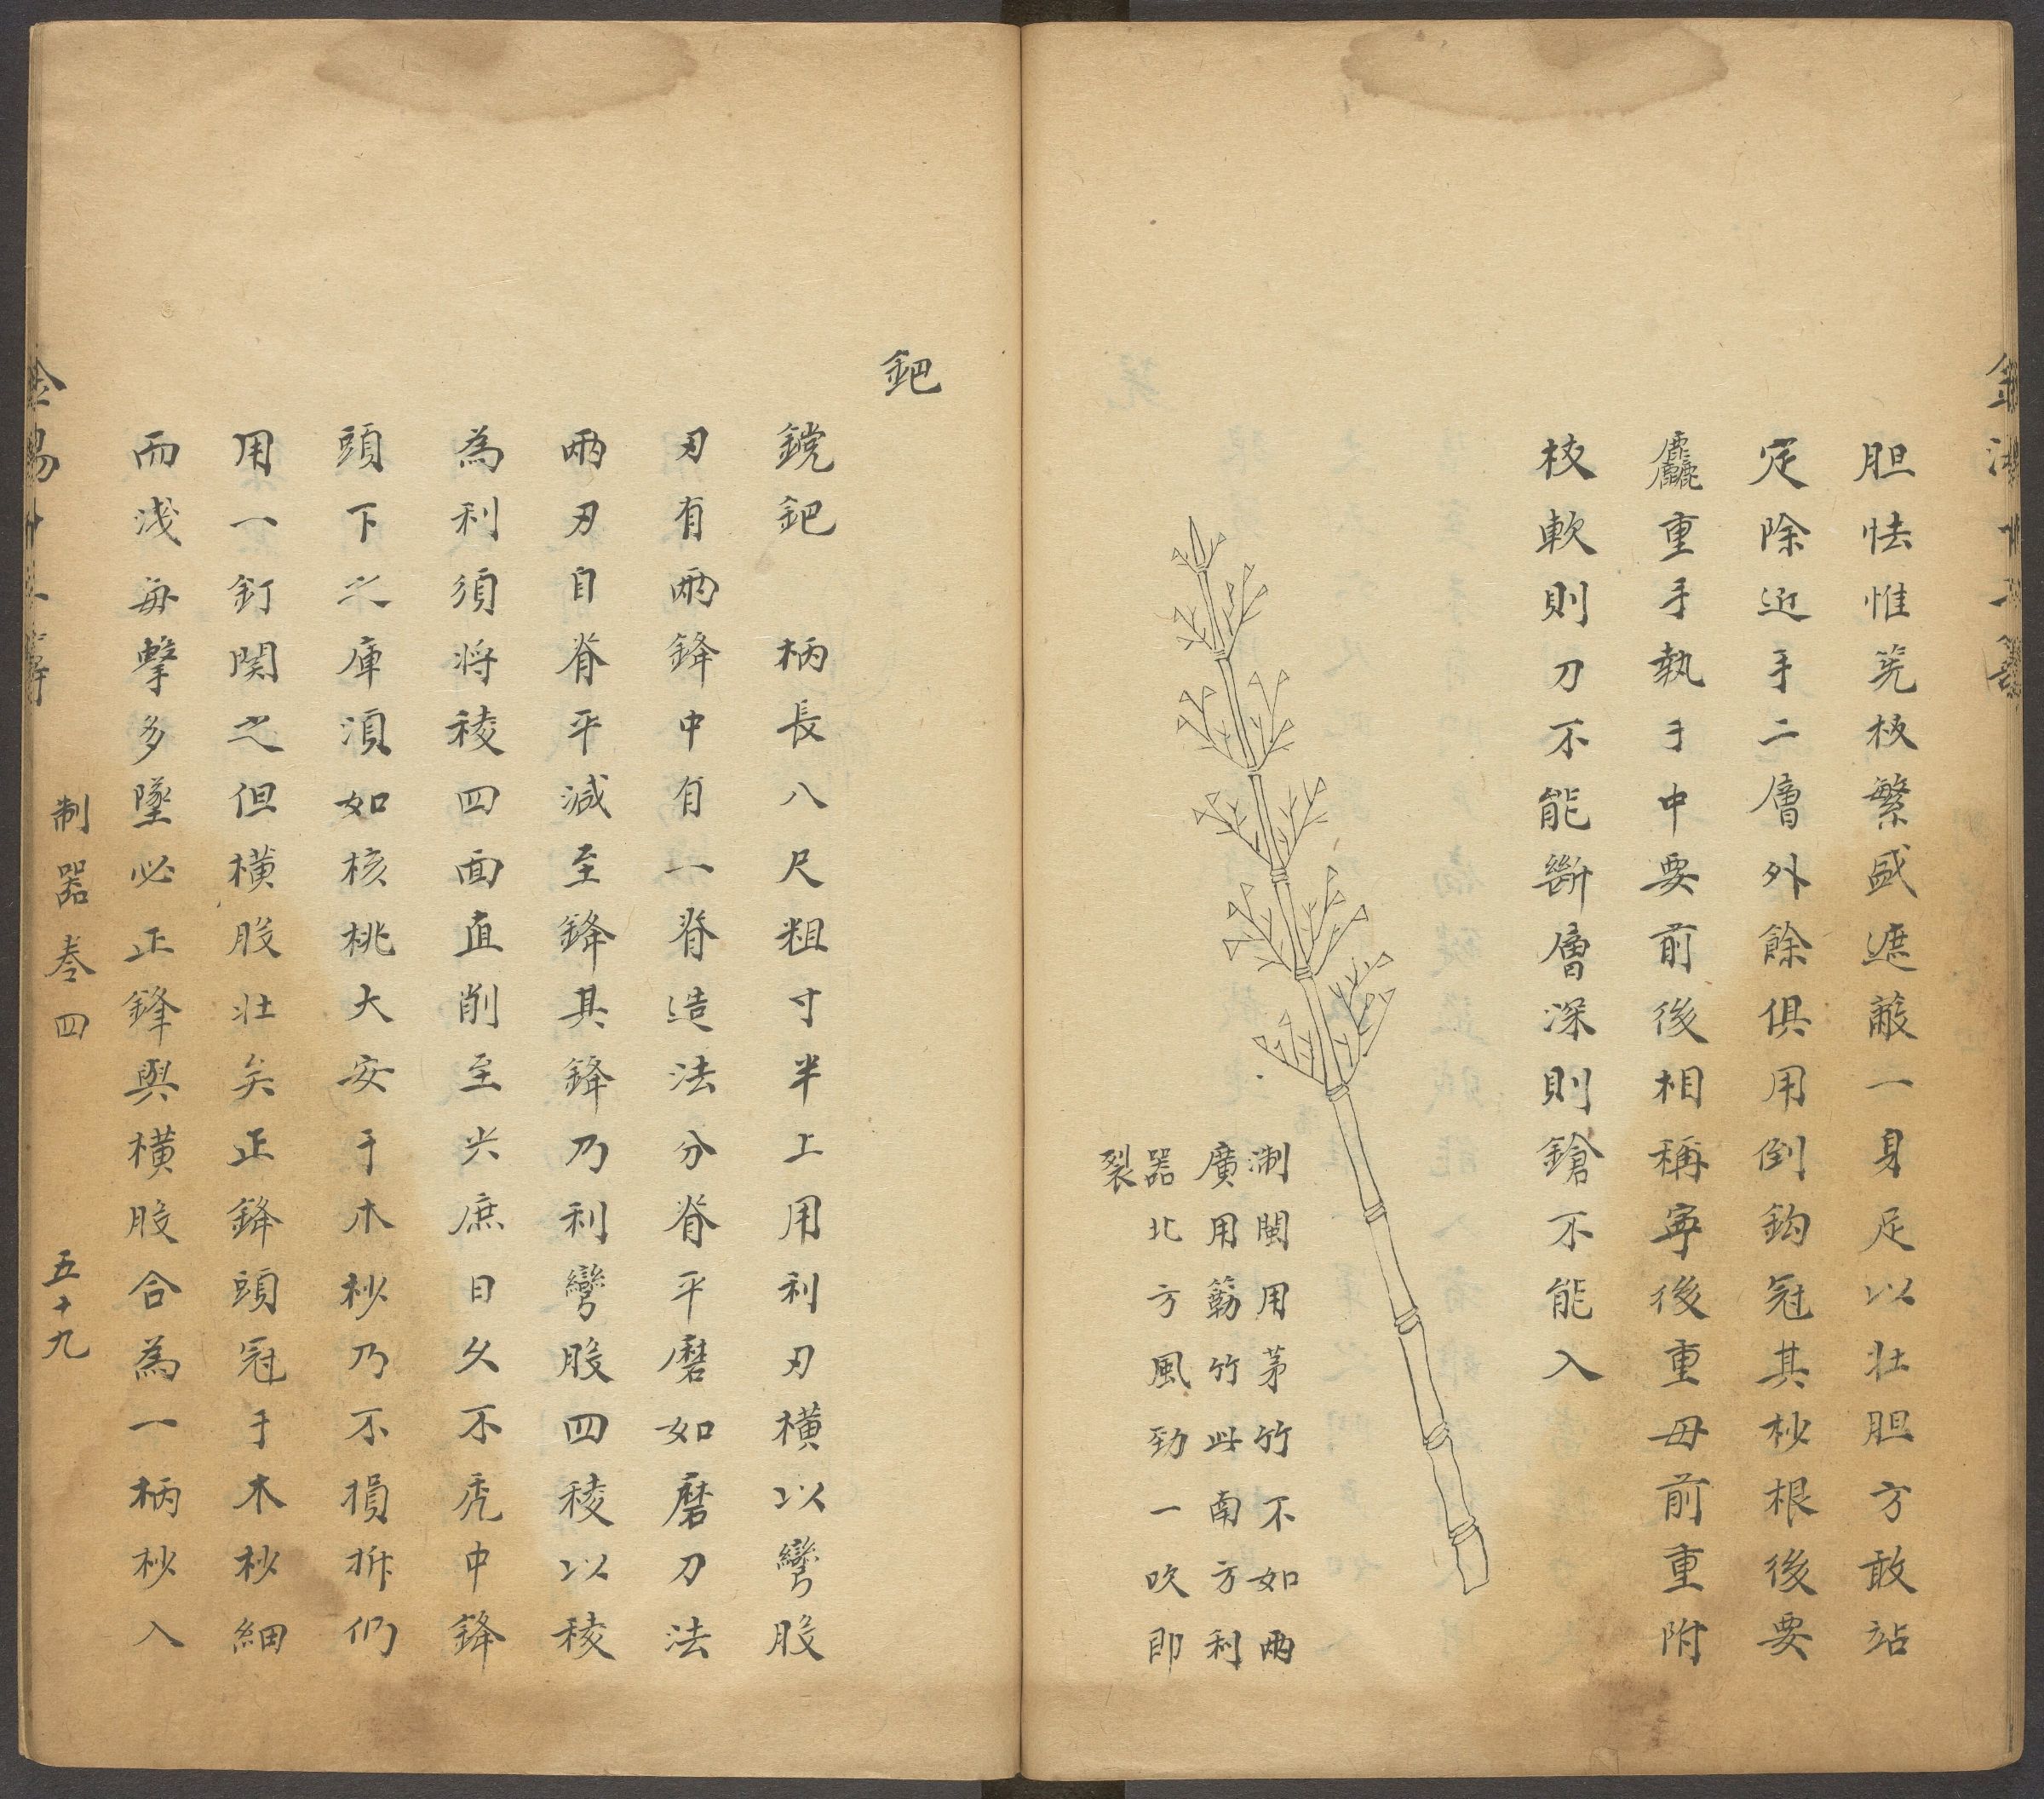 胆怯惟筅枝繁盛遮蔽一身足以壮胆方敢站
定除近手二層外餘俱用倒鈎冠其杪根後要
麤重手執于中要前後相稱寧後重毋前重附
枝軟則刀不能斷層深則鎗不能入
制閩用茅竹不如兩
廣用簕竹此南方利
器北方風勁一吹即
裂
鈀
鎲鈀　柄長八尺粗寸半上用利刃橫以彎股
刃有兩鋒中有一脊造法分脊平磨如磨刀法
兩刃自脊平減至鋒其鋒乃利彎股四稜以稜
為利須將稜四面直削至尖庶日久不秃中鋒
頭下之庫須如核桃大安于木杪乃不損折仍
用一釘関之但橫股壮矣正鋒頭冠于木杪細
而浅每擊多墜必正鋒與橫股合為一柄杪入
制器卷四
五十九